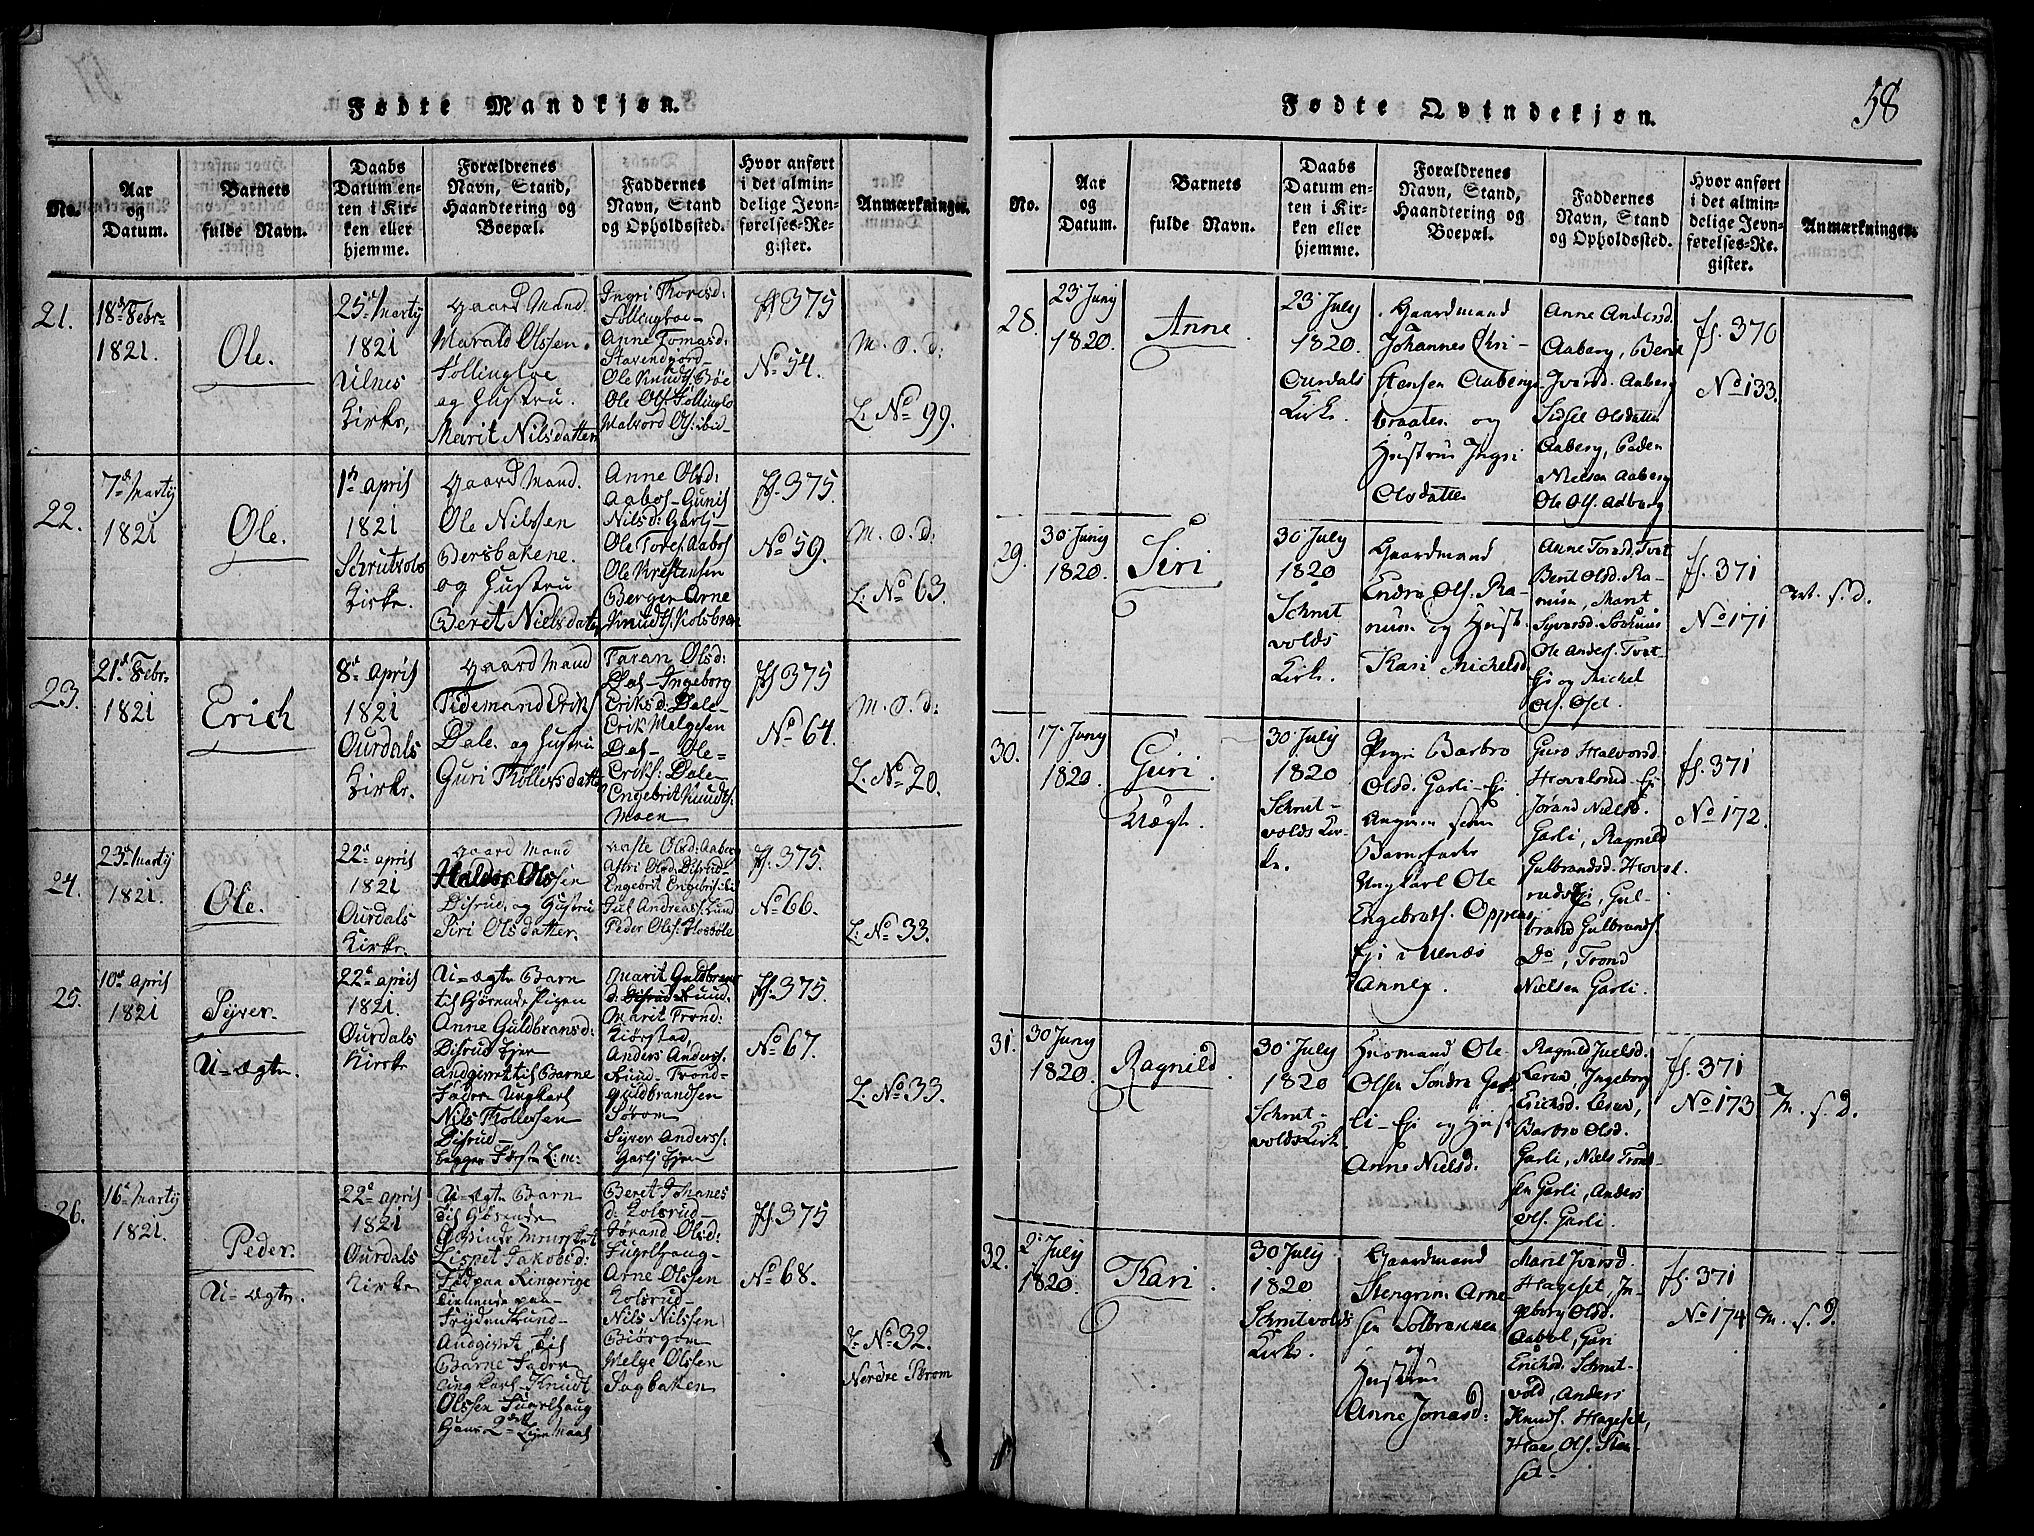 Fødte Mandkjøn.
No.
Aar
og
Datum.
Barnets
fulde Navn.
Daabs
Datum en-
ten i Kir-
ken eller
hjemme.
Forældrenes
Navn, Stand,
Haandtering og
Boepæl.
Faddernes
Navn, Stand
og Opholdssted.
Hvor anført
i det almin-
delige Jevn-
førelses-Re-
gister.
Anmærkninger.
21.
18de Febr.
1821.
Ole.
25de Marty
1821
Ulnes
Kirke,
Gaard Mand
Marald Olssen
Føllingloe
og Hustru.
Marit Nilsdatter
Ingri Thoresd:
Føllingloe-
Anne Tomasd:
Stavendjord-
Ole Knuds: Bøe
Ole Ols: Føllinglo
Halvord Ols: ibid
ff 375
No 54.
M. o. d:
L. No 99.
22.
7de Marty
1821
Ole.
1te april
1821
Schrutvols
Kirke.
Gaard Mand.
Ole Nilssen
Bersbakene.
og Hustru
Beret Nielsdatter
Anne Olsd:
Aabol- Gunil
Nilsd: Garli-
Ole Tores: Aabol
Ole Krestensen
Berger Arne
Knudts: Kolsbren
ff. 375
No 59.
M. o. d:
L. No 63.
23.
21de Febr.
1821
Erich
8de april
1821
Ourdals
Kirke.
Gaard Mand
Tidemand Eriks:
Dale. og Hustru
Guri Thollersdatter
Taran Olsd:
Dal- Ingeborg
Eriksd: Dale-
Erik Melgesen
Dal- Ole-
Eriks: Dale-
Engebrit Knudts.
Moen
ff 375
No 64.
M. o. d:
L. No 20.
24.
23de Marty
1821.
Ole.
22de april
1821
Ourdals
Kirke.
Gaard Mand
Haldor Olssen
Disrud, og Hustru
Siri Olsdatter.
Aaste Olsd: Aaberg
Astri Olsd: Disrud-
Engebrit Engebrits: Li
Jul Andreas: Lund
Peder Ols: Flosbøle
ff. 375.
No 66.
L. No 33.
25.
10de April
1821
Syver.
U-ægte.
22de april
1821.
Ourdals
Kirke
U-ægte Barn
til Hørende Pigen
Anne Guldbransd:
Disrud Ejer
Andgivet til Barne
Fader Ung karl
Nils Thollefsen
Disrud-
begges Første L: m:
Marit Guldbrans
d: Lund.
Marit Trond:
Kiørstad,
Anders Anderss:
Lund- Trond-
Guldbrandsen
Sørom-
Syver Anderss.
Garli Ejer
ff. 375.
No 67.
L. No 33.
26.
16de Marty
1821.
Peder.
U-ægte.
22de april
1821
Ourdals
Kirke
U-ægte Barn
til Hørende
Qvinde Mennesket
Lispet Jakobsd:
Fød paa Ringerige
tienende paa
Frydenlund-
Andgivet til
Barne Fader
ung karl- Knudt
Olssen Fuglehaug
hans 2de Leje Maal
Beret Johanes
d: Kolsrud-
Jørand Olsd:
Fuglhaug-
Arne Olssen
Kolsrud-
Nils Nilssen
Biørgom-
Melge Olssen
Sagbaken
ff. 375
No 68.
L. No 32.
Nordre Brom
Fødte Qvindekjøn.
58
No.
Aar
og
Datum.
Barnets
fulde Navn.
Daabs
Datum en-
ten i Kir-
ken eller
hjemme.
Forældrenes
Navn, Stand,
Haandtering og
Boepæl.
Faddernes
Navn, Stand
og Opholdssted.
Hvor anført
i det almin-
delige Jevn-
førelses-Re-
gister.
Anmærkninger.
28.
23 Juny
1820.
Anne
23 July
1820.
Ourdals
Kirk.
Gaardmand
Johannes Chri-
stensen Aabergs
braaten og
Hustrue Ingri
Olsdatter
Anne Andersd.
Aaberg, Berit
Ivarsd. Aaberg
Sidsel Olsdatter
Aaberg, Peder
Nielsen Aaberg
Ole Ols. Aaberg
ff. 370
No 133.
29.
30 Juny
1820.
Siri
30 July
1820
Schrut
volds
Kirk.
Gaardmand
Endre Ols. Ra-
num og Hust.
Kari Michelsd
Anne Torsd. Tvet
Berit Olsd. Ra-
num, Marit
Syversd.
Ole Anders. Tvet-
Ej og Michel
Ols. Oset.
ff. 371
No 171
M. s. d.
30.
17 Juny
1820.
Guri.
Uægt.
30 July
1820
Schrut-
volds Kir-
ke.
Pige Barbro
Olsd. Garli-Ej
Angiven som
Barnefader
Ungkarl Ole
Engebrets. Oppenas
Ej i Ulnæs
Annex.
Guro Halvorsd.
Hovelsrud-Ej
Jørand Nielsd.
Garli, Ragnild
Gulbrandsd. Hovels
rudsEj, Gul-
brand Gulbrands.
Do, Trond
Nielsen Garli.
ff. 371
No 172.
31.
30 Juny
1820.
Ragnild.
30 July
1820
Schrut-
volds Kirk.
Husmand Ole
Olsen Søndre Gar
li-Ej og Hust
Anne Nielsd.
Ragnild Juelsd.
Lerud, Ingeborg
Erichsd. Lerud,
Barbro Olsd.
Garli, Niels Trond-
sen Garli, Anders
Ols. Garli.
ff. 371
No 173
M. s. d.
32.
2 July
1820.
Kari.
30 July
1820
Schrutvolds
Kirk.
Gaardmand
Stengrim Arne-
sen Solbrekken
og
Hustrue
Anne Jonasd:
Marit Ivarsd.
Hageset, In-
geborg Olsd.
Aabol, Guri
Erichsd. Schrut-
vold, Anders
Knuds. Hageset,
Haes Ols. Sten-
set-
ff. 371
No 174
M. s. d.